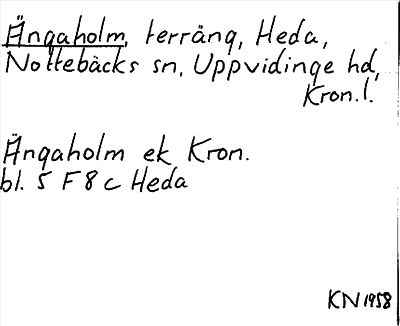 Ängaholm, terräng, Heda,
Nottebäcks sn, Uppvidinge hd,
Kron.l.
Ängaholm ek Kron.
bl. 5 F 8 c Heda
KN 1958